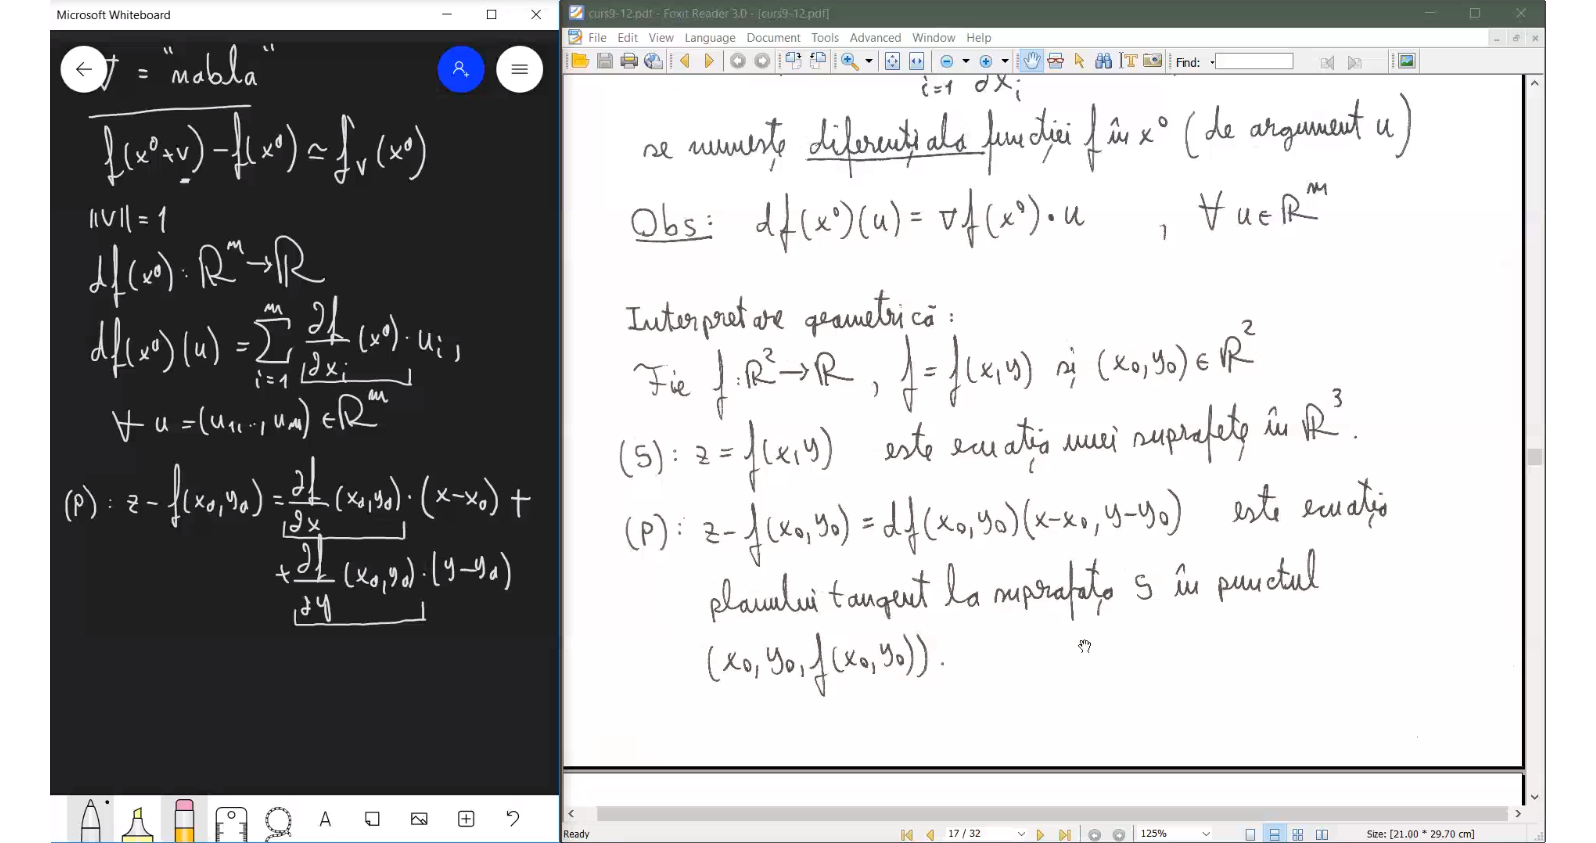 Microsoft Whiteboard
∇ = "nabla"
f(x⁰+v) − f(x⁰) ≃ f'ᵥ(x⁰)
||v|| = 1
df(x⁰) : ℝᵐ → ℝ
df(x⁰)(u) = ∑ᵢ₌₁ᵐ ∂f/∂xᵢ (x⁰) · uᵢ ,
∀ u = (u₁, .., uₘ) ∈ ℝᵐ
(P) : z − f(x₀,y₀) = ∂f/∂x (x₀,y₀) · (x−x₀) +
+ ∂f/∂y (x₀,y₀) · (y−y₀)
curs9-12.pdf - Foxit Reader 3.0 - [curs9-12.pdf]
File Edit View Language Document Tools Advanced Window Help
Find:
i=1 ∂xᵢ
se numește diferențiala funcției f în x⁰ (de argument u)
Obs: df(x⁰)(u) = ∇f(x⁰) · u , ∀ u ∈ ℝᵐ
Interpretare geometrică :
Fie f : ℝ² → ℝ , f = f(x,y) și (x₀,y₀) ∈ ℝ²
(S) : z = f(x,y) este ecuația unei suprafețe în ℝ³.
(P) : z − f(x₀,y₀) = df(x₀,y₀)(x−x₀, y−y₀) este ecuația
planului tangent la suprafața S în punctul
(x₀, y₀, f(x₀,y₀)).
Ready 17 / 32 125% Size: [21.00 * 29.70 cm]